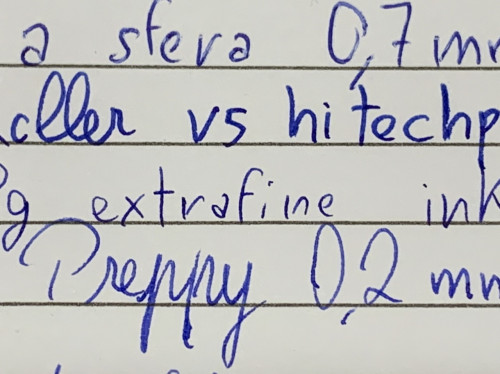 a sfera 0,7 mm
vs hitechp
g extrafine ink
Preppy 0,2 mm